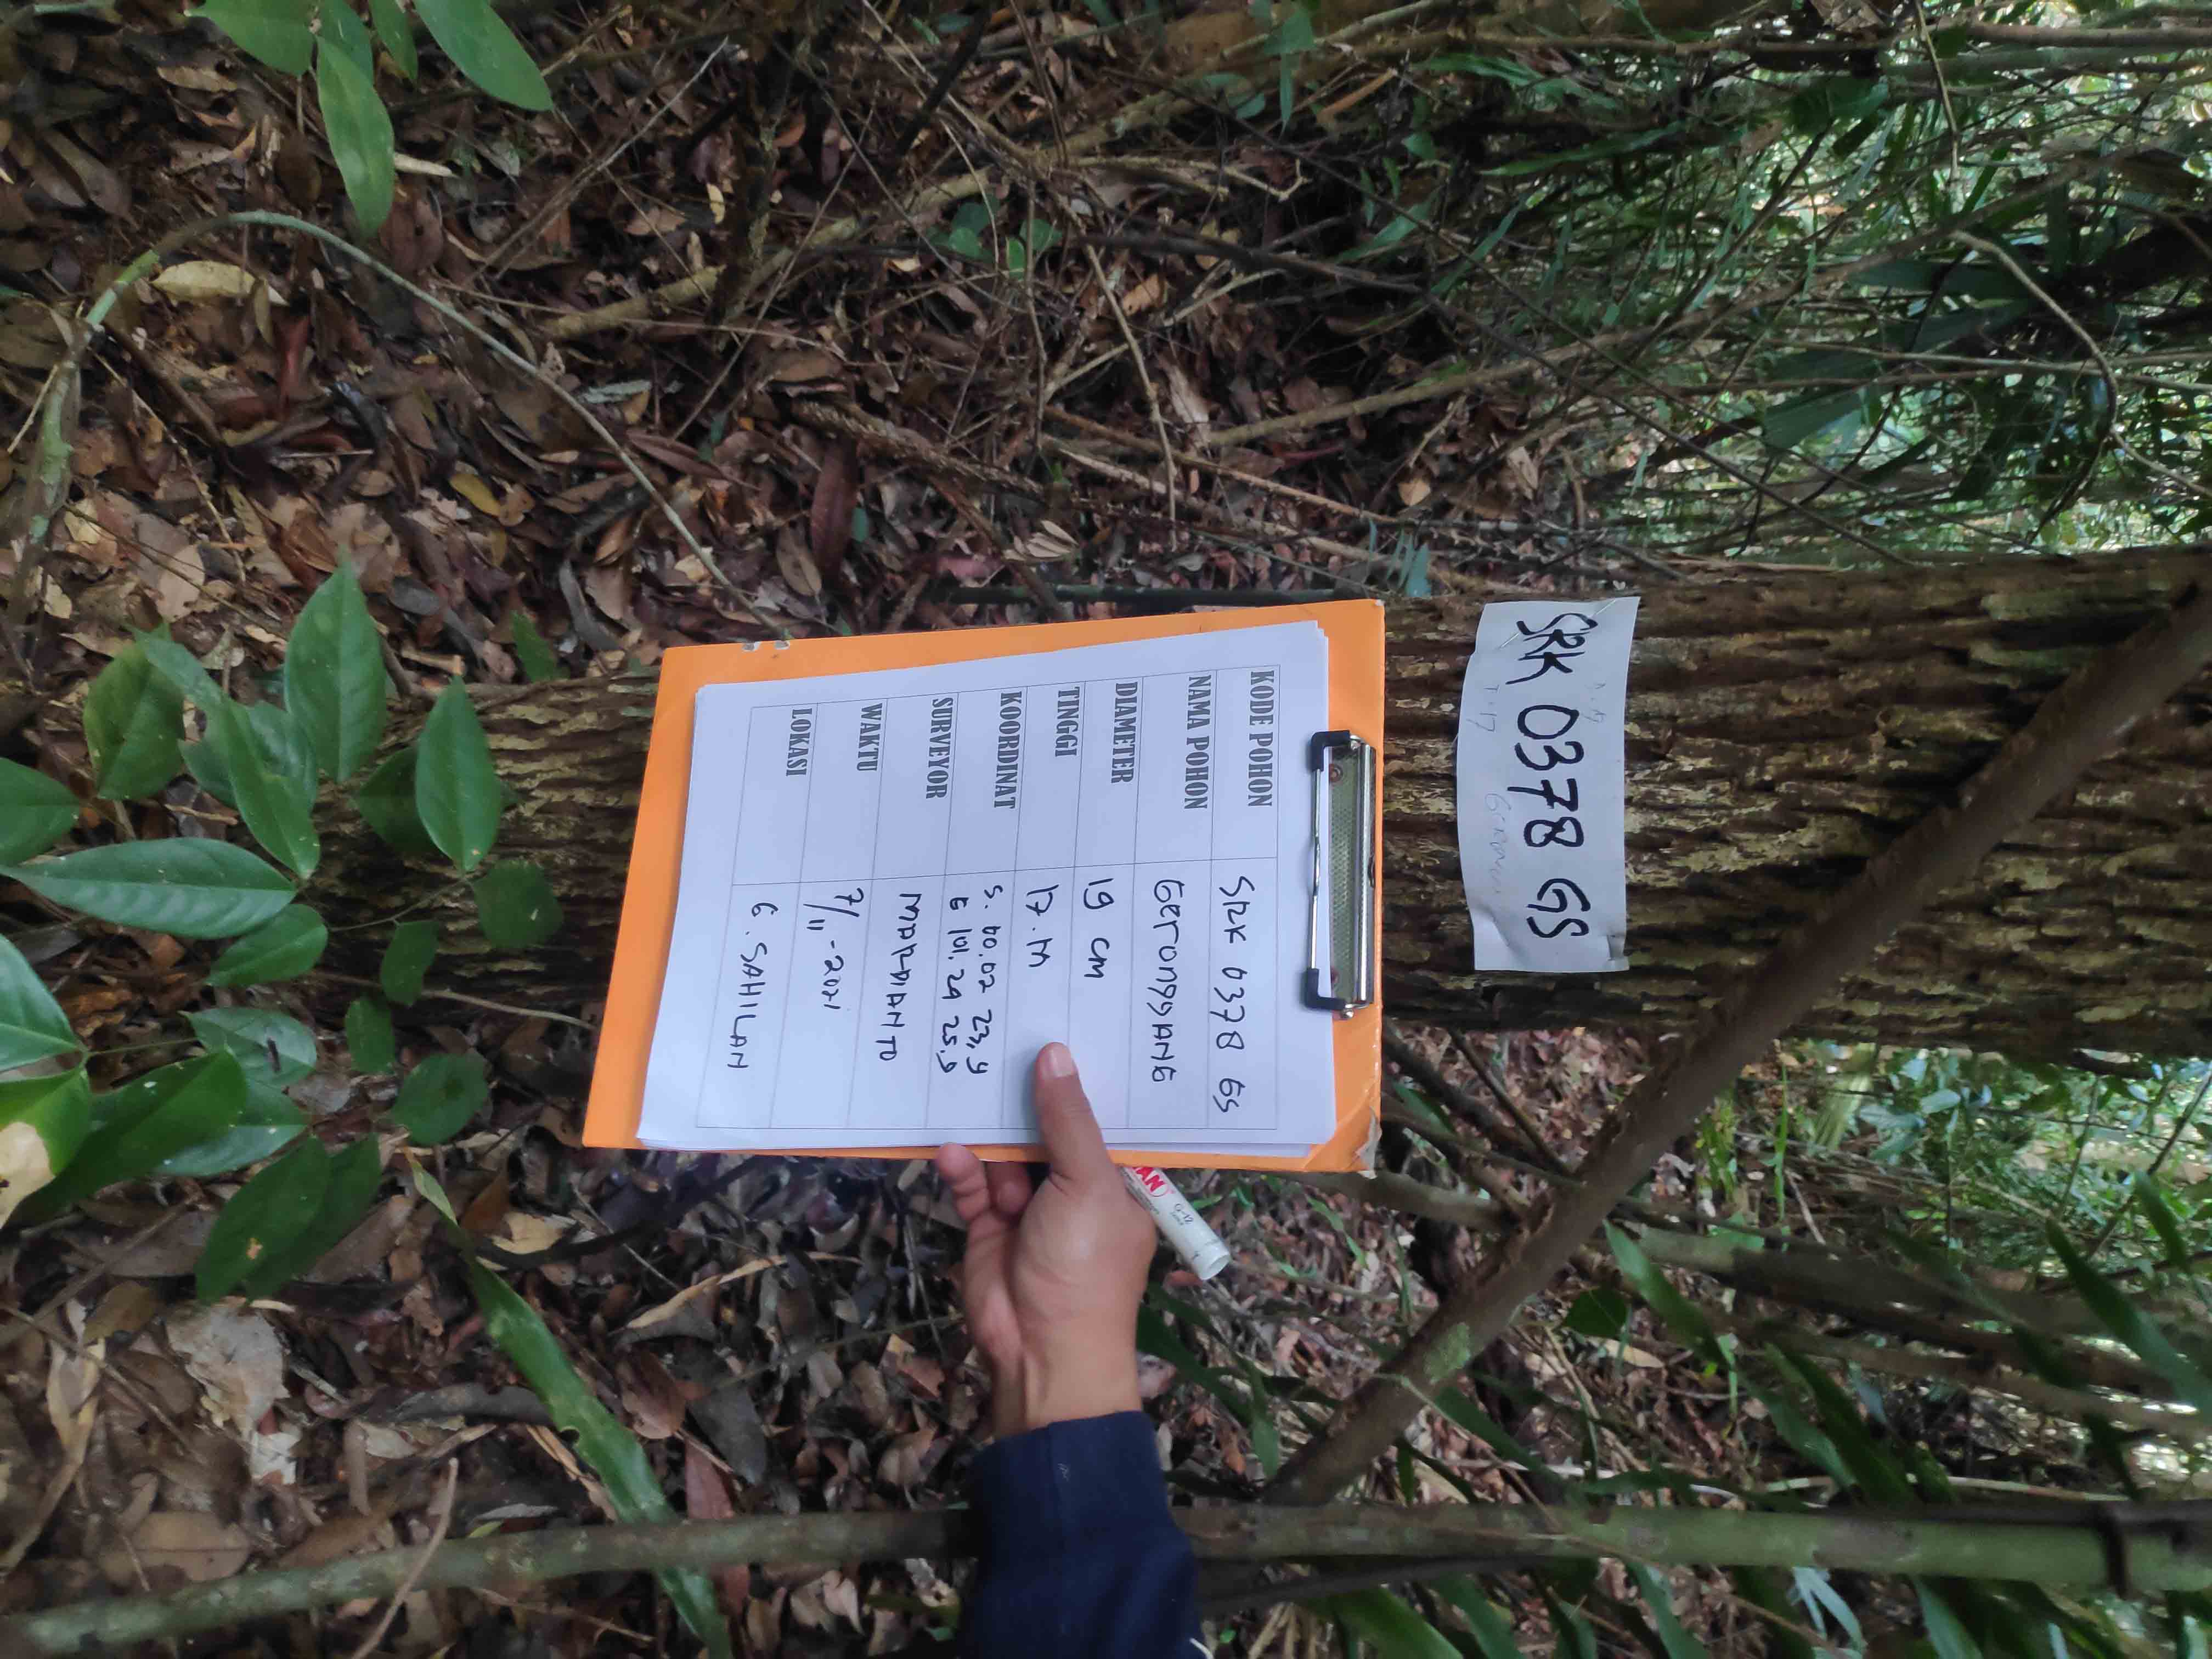 SRK 0378 GS
KODE POHON SRK 0378 GS
NAMA POHON GERONGGANG
DIAMETER 19 cm
TINGGI 17.M
KOORDINAT S. 00.02 23,9
E 101. 29 25.9
SURVEYOR MARDIANTO
WAKTU 7/11 - 2021
LOKASI G. SAHILAN